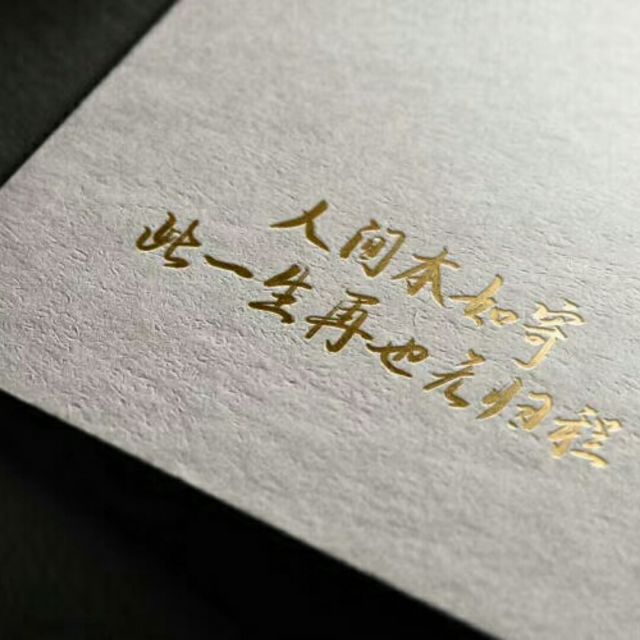 人间本如寄
此一生再也无归程